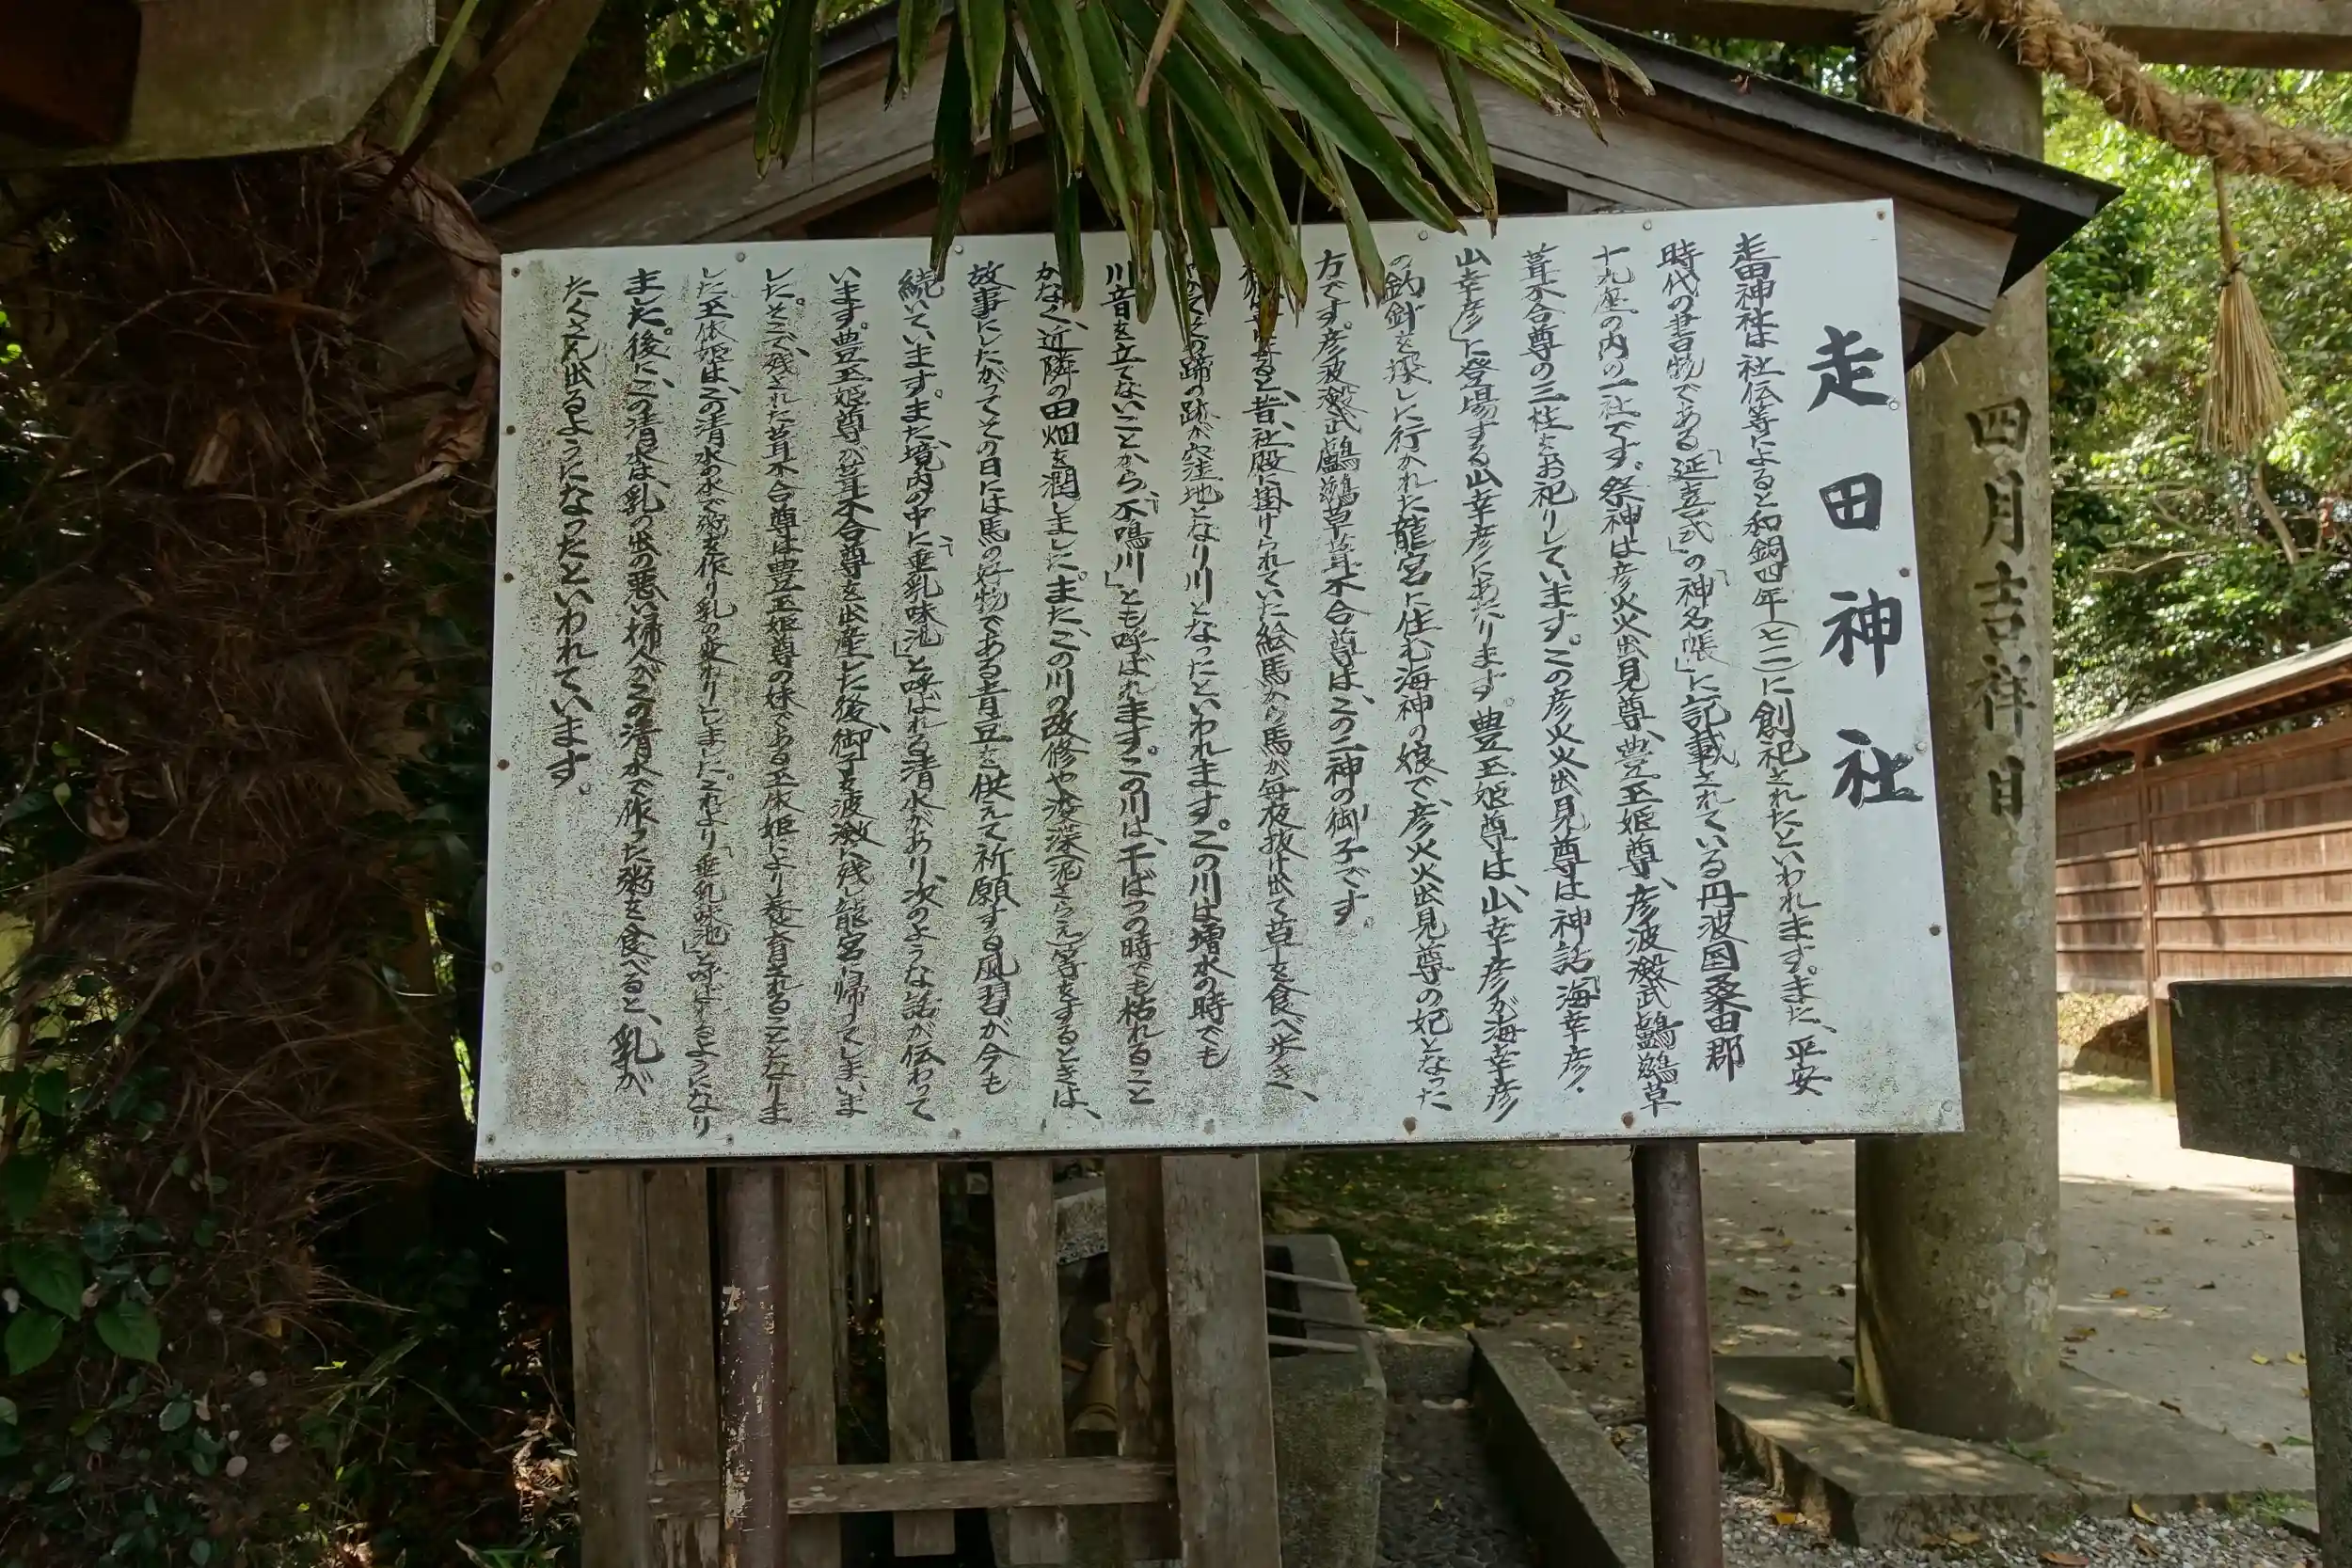 走田神社
走田神社は社伝等によると和銅四年(七一一)に創祀されたといわれます。また、平安
時代の書物である「延喜式」の「神名帳」に記載されている丹波国桑田郡
十九座の内の一社です。祭神は彦火火出見尊、豊玉姫尊、彦波瀲武鸕鷀草
葺不合尊の三柱をお祀りしています。この彦火火出見尊は神話「海幸彦・
山幸彦」に登場する山幸彦にあたります。豊玉姫尊は、山幸彦が海幸彦
の釣針を探しに行かれた龍宮に住む海神の娘で、彦火火出見尊の妃となった
方です。彦波瀲武鸕鷀草葺不合尊は、この二神の御子です。
ると、昔、社殿に掛けられていた絵馬から馬が毎夜抜け出て草を食べ歩き、
その蹄の跡が穴窪地となり川となったといわれます。この川は増水の時でも
川音を立てないことから「不鳴川」とも呼ばれます。この川は、干ばつの時でも枯れること
がなく、近隣の田畑を潤しました。また、この川の改修や浚深(泥さらえ)等をするときは、
故事にしたがってその日には馬の好物である青豆を供えて祈願する風習が今も
続いています。また、境内の中に「垂乳味池」と呼ばれる清水があり、次のような話が伝わって
います。豊玉姫尊が葺不合尊を出産した後、御子を波瀲に残し龍宮に帰ってしまいま
した。そこで、残された葺不合尊は豊玉姫尊の妹である玉依姫により養育されることとなりま
した。玉依姫は、この清水の水で粥を作り乳の変わりとしました。これより「垂乳味池」と呼ばれるようになり
ました。後に、この清水は、乳の出の悪い婦人がこの清水で作った粥を食べると、乳が
たくさん出るようになったといわれています。
四月吉祥日